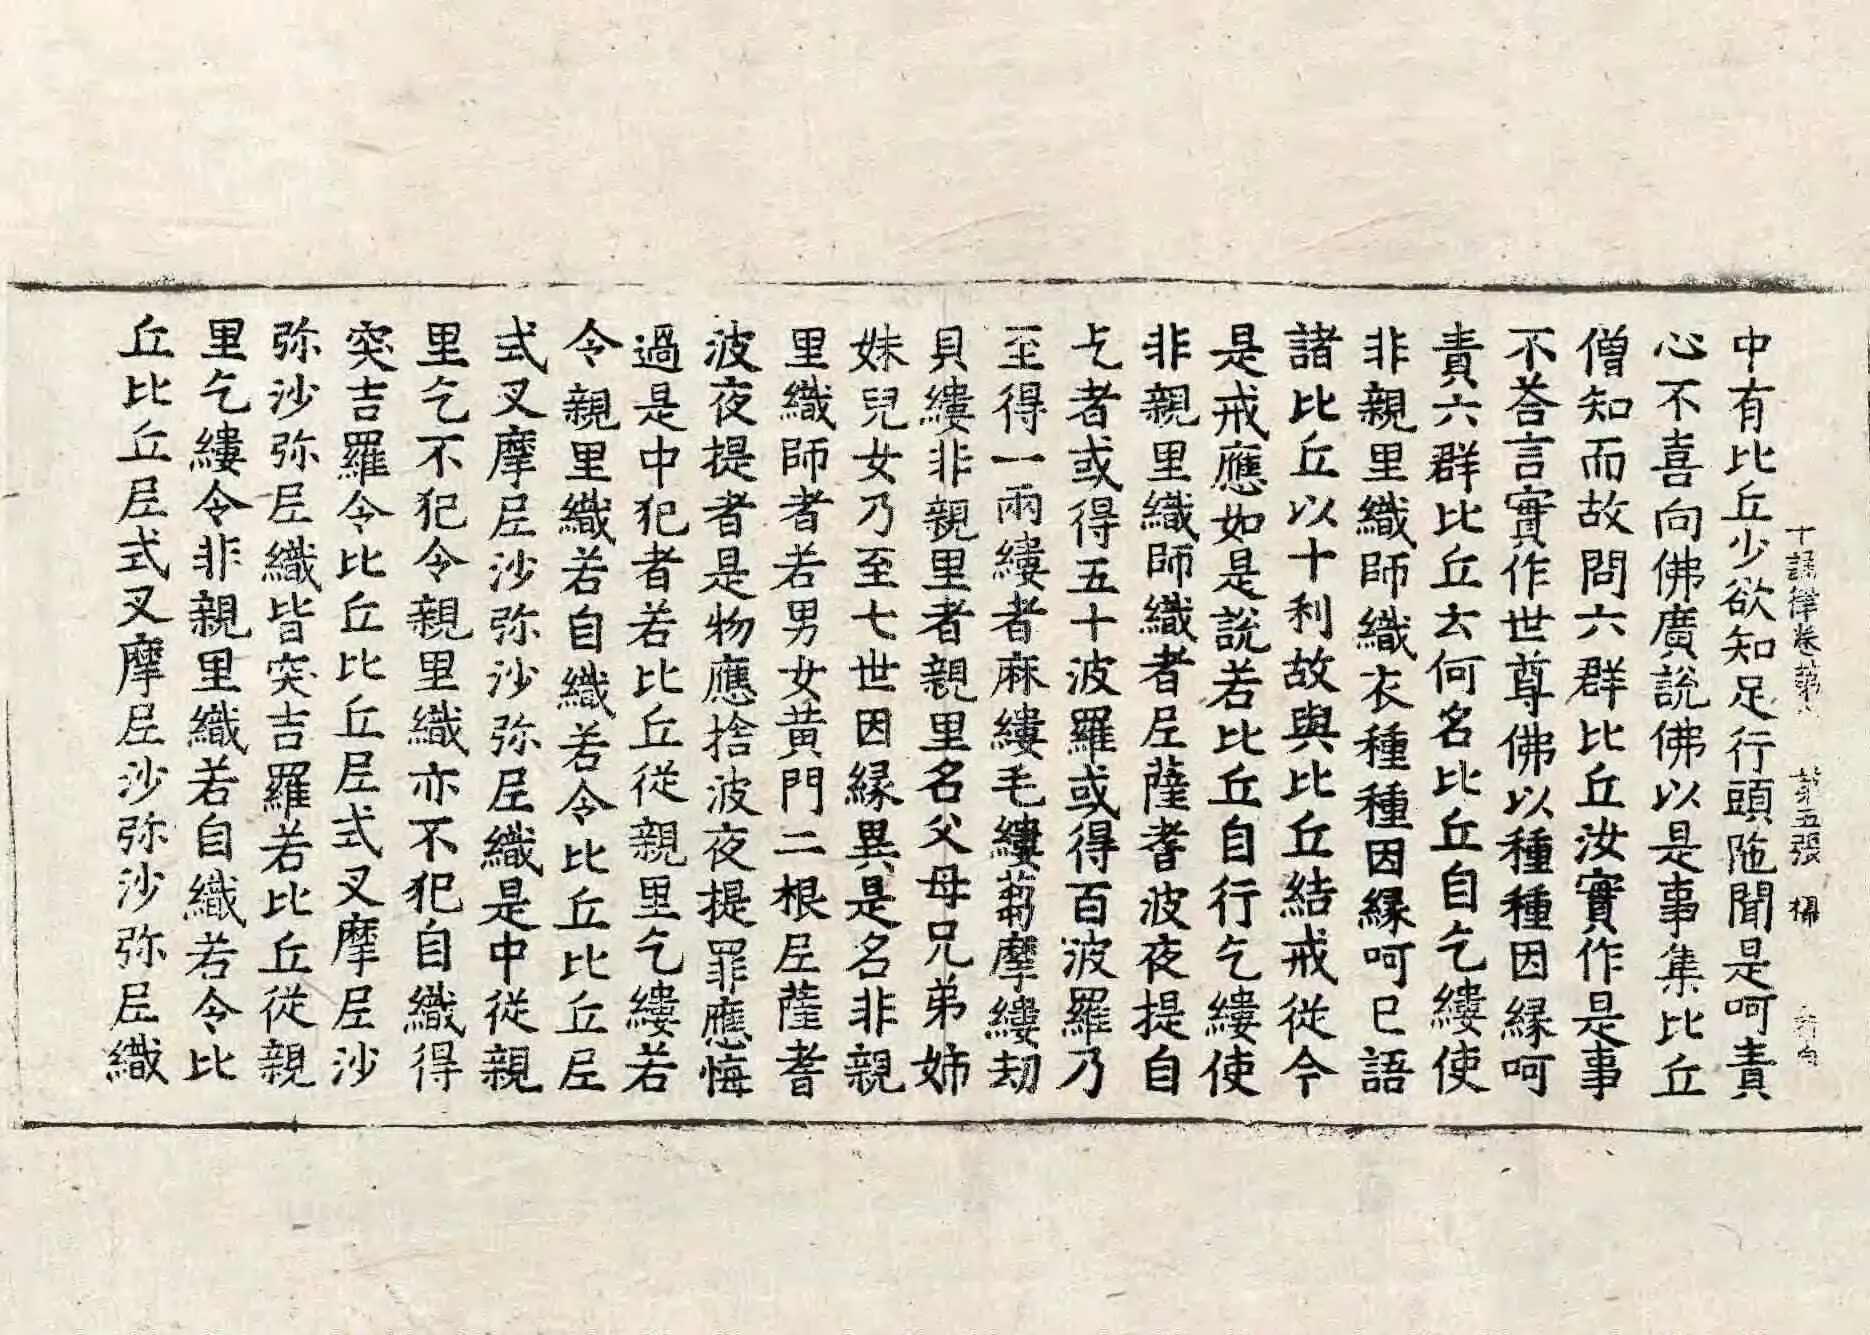 十誦律卷第八 第五張 猶
中有比丘少欲知足行頭陁聞是呵責
心不喜向佛廣說佛以是事集比丘
僧知而故問六群比丘汝實作是事
不荅言實作世尊佛以種種因縁呵
責六群比丘云何名比丘自乞縷使
非親里織師織衣種種因縁呵已語
諸比丘以十利故與比丘結戒從今
是戒應如是說若比丘自行乞縷使
非親里織師織者尼薩耆波夜提自
乞者或得五十波羅或得百波羅乃
至得一兩縷者麻縷毛縷芻摩縷劫
貝縷非親里者親里名父母兄弟姉
妹兒女乃至七世因縁異是名非親
里織師者若男女黄門二根尼薩耆
波夜提者是物應捨波夜提罪應悔
過是中犯者若比丘從親里乞縷若
令親里織若自織若令比丘比丘尼
式叉摩尼沙弥沙弥尼織是中從親
里乞不犯令親里織亦不犯自織得
突吉羅令比丘比丘尼式叉摩尼沙
弥沙弥尼織皆突吉羅若比丘從親
里乞縷令非親里織若自織若令比
丘比丘尼式叉摩尼沙弥沙弥尼織